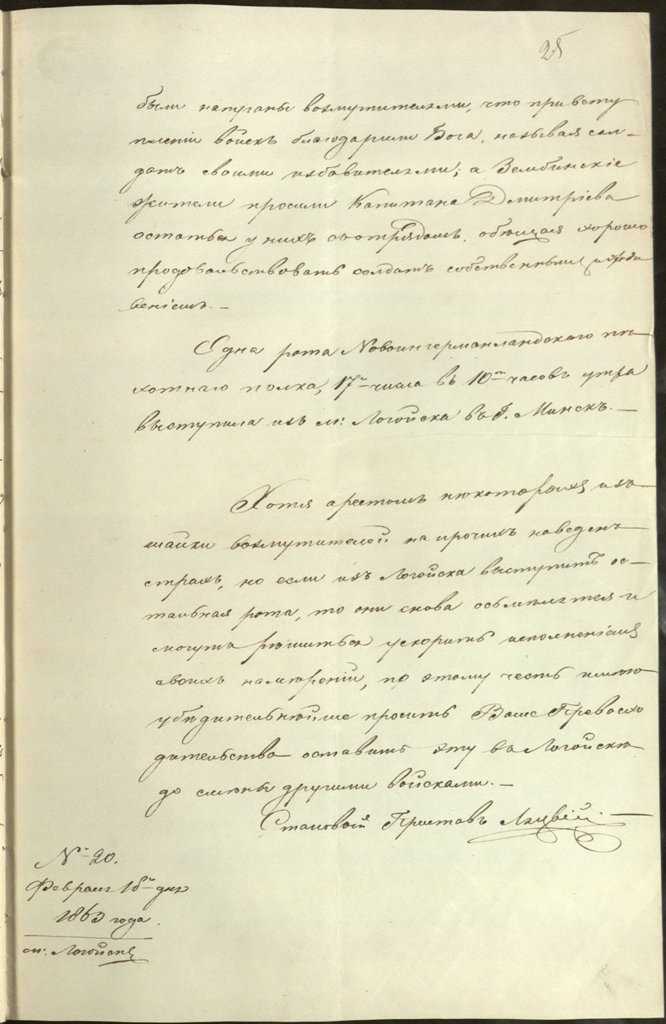 25
были напуганы возмутителями, что при всту
пленіи войскъ благодарили Бога, называя сол-
датъ своими избавителями; а Зембинскіе
жители просили Капитана Дмитріева
остаться у нихъ съ отрядомъ, обѣщая хорошо
продовольствовать солдатъ собственнымъ иждиве
веніемъ. —
Одна рота Новоингерманландскаго пѣ
хотнаго полка, 17го числа въ 10ть часовъ утра
выступила изъ м: Логойска въ г. Минскъ. —
Хотя арестомъ нѣкоторыхъ изъ
шайки возмутителей на прочихъ наведенъ
страхъ, но если изъ Логойска выступитъ ос-
тальная рота, то они снова осьмѣлятся и
могутъ рѣшиться ускорить исполненіемъ
своихъ намѣреній, по этому честь имѣю
убѣдительнѣйше просить Ваше Превосхо
дительство оставить эту въ Логойскѣ
до смѣны другими войсками. —
Становой Приставъ
№ 20.
Февраля 18го дня
1863 года.
м: Логойскъ